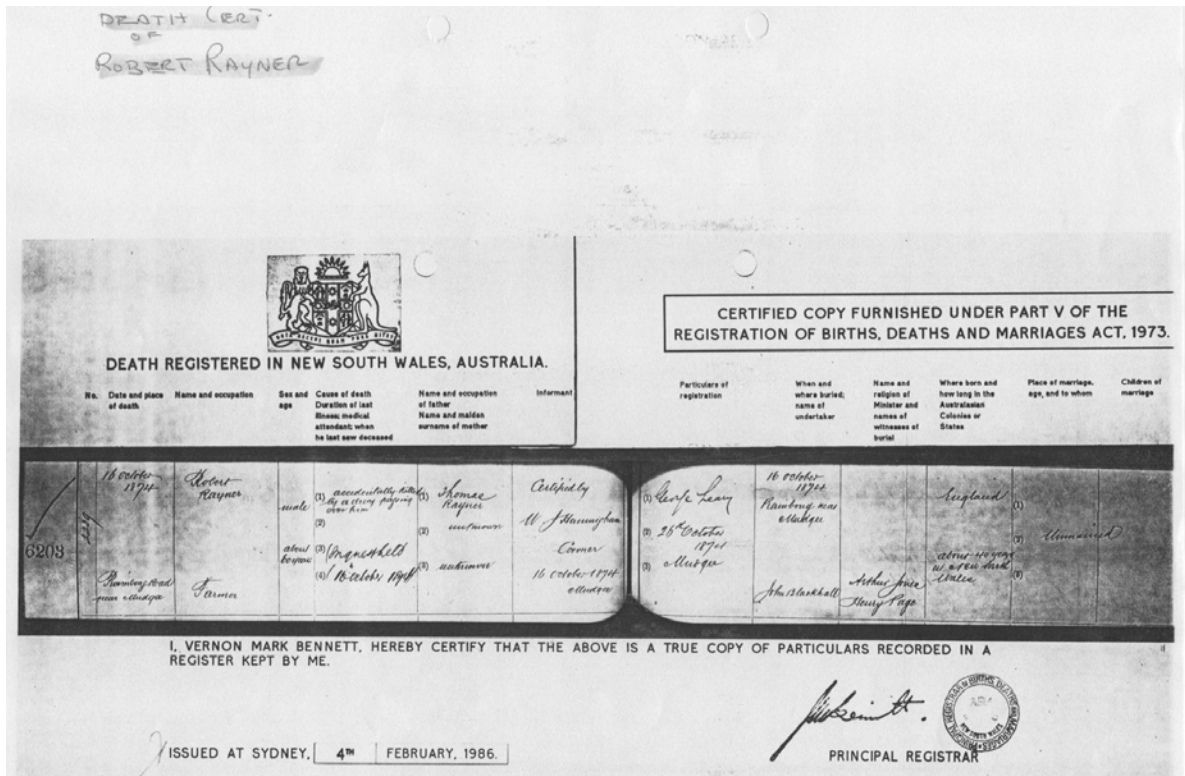 DEATH CERT.
OF
ROBERT RAYNER
DEATH REGISTERED IN NEW SOUTH WALES, AUSTRALIA.
CERTIFIED COPY FURNISHED UNDER PART V OF THE
REGISTRATION OF BIRTHS, DEATHS AND MARRIAGES ACT, 1973.
No.
Date and place
of death
Name and occupation
Sex and
age
Cause of death
Duration of last
illness; medical
attendant; when
he last saw deceased
Name and occupation
of father
Name and maiden
surname of mother
Informant
Particulars of
registration
When and
where buried;
name of
undertaker
Name and
religion of
Minister and
names of
witnesses of
burial
Where born and
how long in the
Australasian
Colonies or
States
Place of marriage,
age, and to whom
Children of
marriage
6203
16 October
1874
near Mudgee
Robert
Rayner
Farmer
male
about
60 years
(1) accidentally killed
by a dray passing
over him
(2)
(3) Inquest held
(4) 16 October 1874
(1) Thomas
Rayner
(2) unknown
(3) unknown
Certified by
W J
Coroner
16 October 1874
Mudgee
(1) George
(2) 26th October
1874
(3) Mudgee
16 October
1874
near
Mudgee
John Blackhall
Arthur
Henry Page
England
about 40 years
in New South
Wales
(1)
(2) Unmarried
(3)
I, VERNON MARK BENNETT, HEREBY CERTIFY THAT THE ABOVE IS A TRUE COPY OF PARTICULARS RECORDED IN A
REGISTER KEPT BY ME.
ISSUED AT SYDNEY, 4TH FEBRUARY, 1986.
PRINCIPAL REGISTRAR